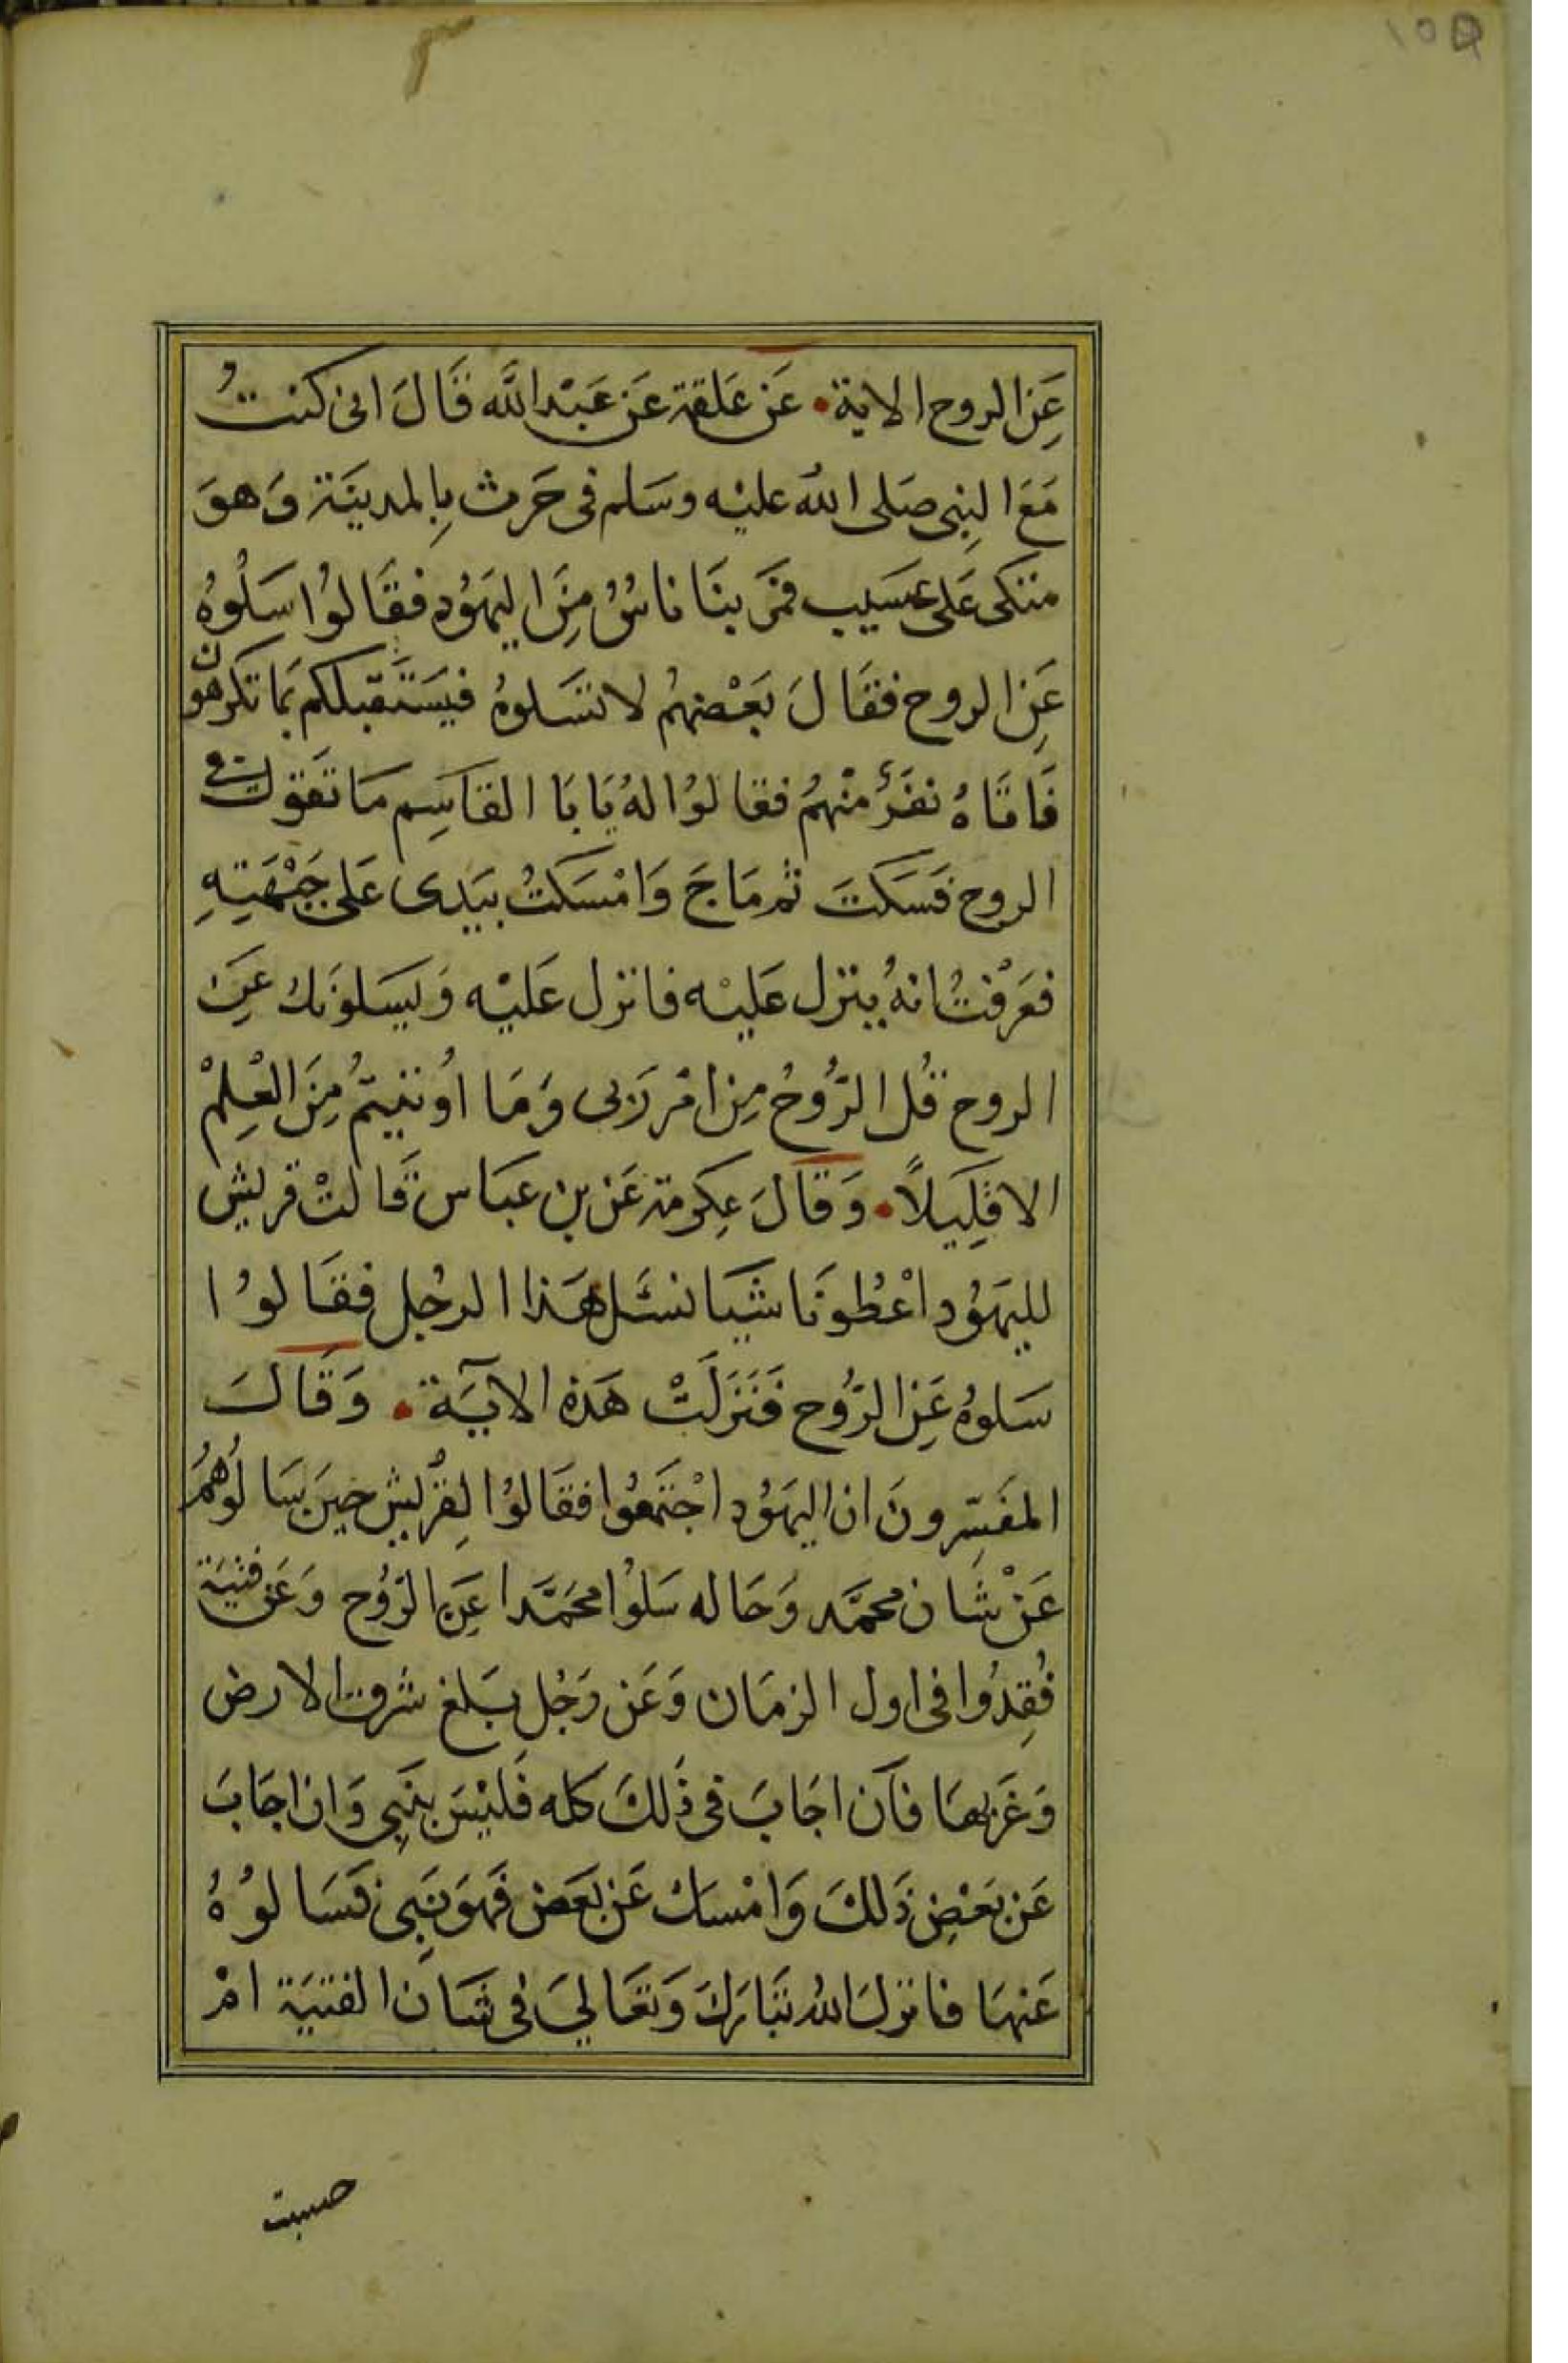 عَنِ الروح الاية • عَن عَلقمة عَن عَبْد الله قَالَ انى كنتُ
مَعَ النبِى صَلى الله عليْه وسَلم فى حَرث بِالمدينَة وَهوَ
متكى عَلى عسَيب فمَرَ بنَا ناسٌ مِنَ اليهَوُد فقَالوُا سَلوُهُ
عَنِ الروح فقَالَ بَعْضهُم لا تسَلوهُ فيَستَقبلكم بمَا تكرهون
فَاتاهُ نفَرٌ منْهمُ فقالوُا لهُ يَابَا القاسِم مَا تقَول فى
الروح فَسَكتَ ثم مَاجَ وَامْسَكتُ بيَدى عَلى جَبْهَتِهِ
فعَرَفْتُ انهُ ينزل عَليْه فانزل عَليْه وَيسَلونَك عَنِ
الروح قُل الرّوُحُ مِن امْر رَبى وَمَا اوُتيتمُ مِنَ العْلِمْ
الا قلِيَلاً • وَقاَلَ عِكرمة عَن بن عبَاس قَالتْ قريش
لليهَوُد اعْطُونَا شَيَا نسَئل هَذا الرجُل فقَالوُا
سَلوهُ عَنِ الرّوُح فَنَزَلَتْ هَذه الآيَة • وَقَالَ
المفَسِّرونَ ان اليهَوُد اجْتمَعوُا فقَالوُا لِقرُيش حِينَ سَالوُهمُ
عَنْ شَان محمَّد وَحَاله سَلوُا محَمَّدا عَنِ الرّوُح وَعَن فتيَة
فُقِدُوا فى اول الزمَان وَعَن رَجُل بَلغ شرق الارض
وَغَربهَا فآن اجَابَ فى ذَلكَ كله فَليْسَ بنَبِى وَان اجَابَ
عَن بَعْضِ ذَلكَ وَامْسَك عَن بَعَض فَهوَ نبَى فسَالوُهُ
عَنهَا فانزلَ الله تبَاركَ وَتعَالىَ فى شَان الفتيَة امْ
حسبت
١٥٥